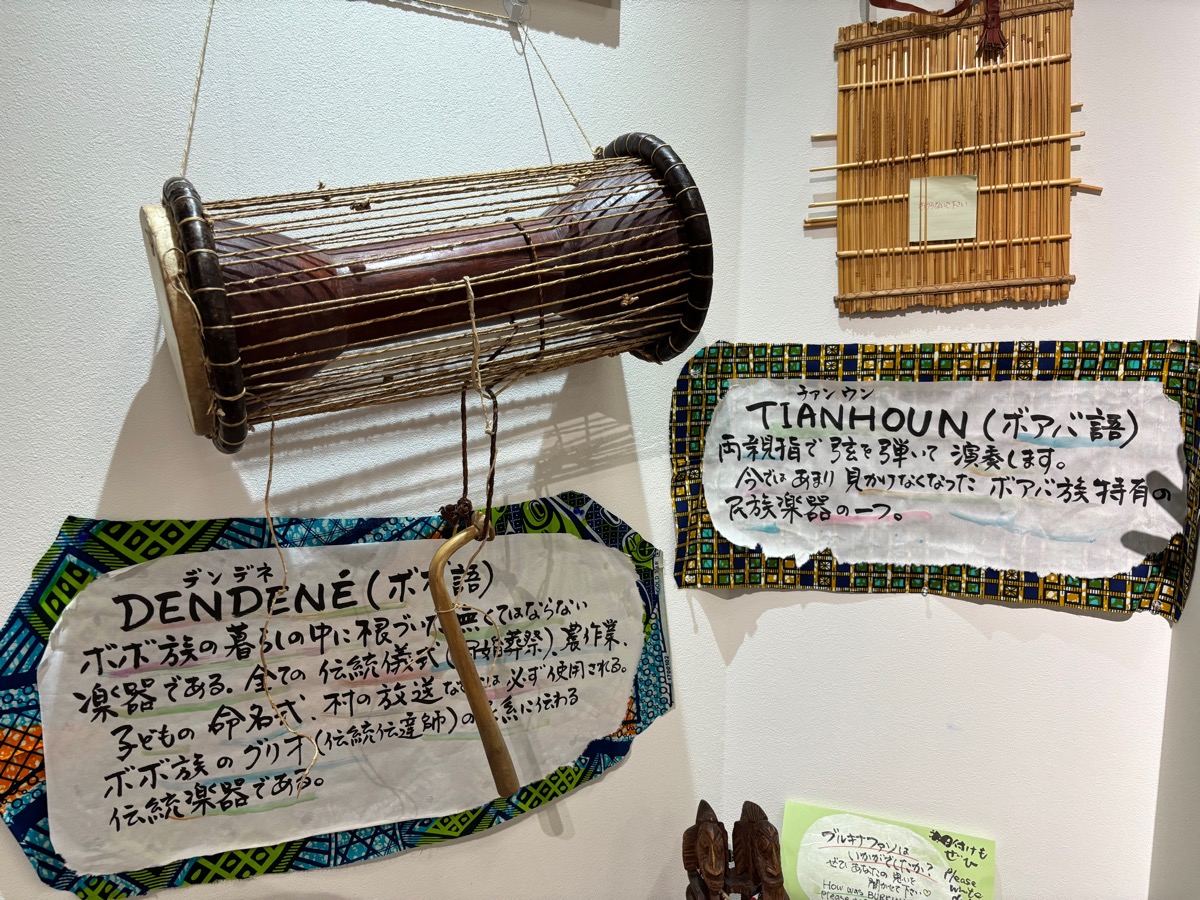 さわらないで下さい
チァン ウン
TIANHOUN (ボアバ語)
両親指で弦を弾いて 演奏します。
今ではあまり 見かけなくなった ボアバ族特有の
民族楽器の一つ。
デンデネ
DENDENÉ (ボボ語)
ボボ族の暮らしの中に根づいた 無くてはならない
楽器である。全ての 伝統儀式 (冠婚葬祭)、農作業、
子どもの 命名式、村の放送などには 必ず使用される。
ボボ族の グリオ (伝統伝達師) の家系に伝わる
伝統楽器である。
ブルキナファソは
いかがでしたか?
ぜひあなたの思いを
聞かせて下さい♡
How was BURKIN
付けも
ぜひ
Please
write